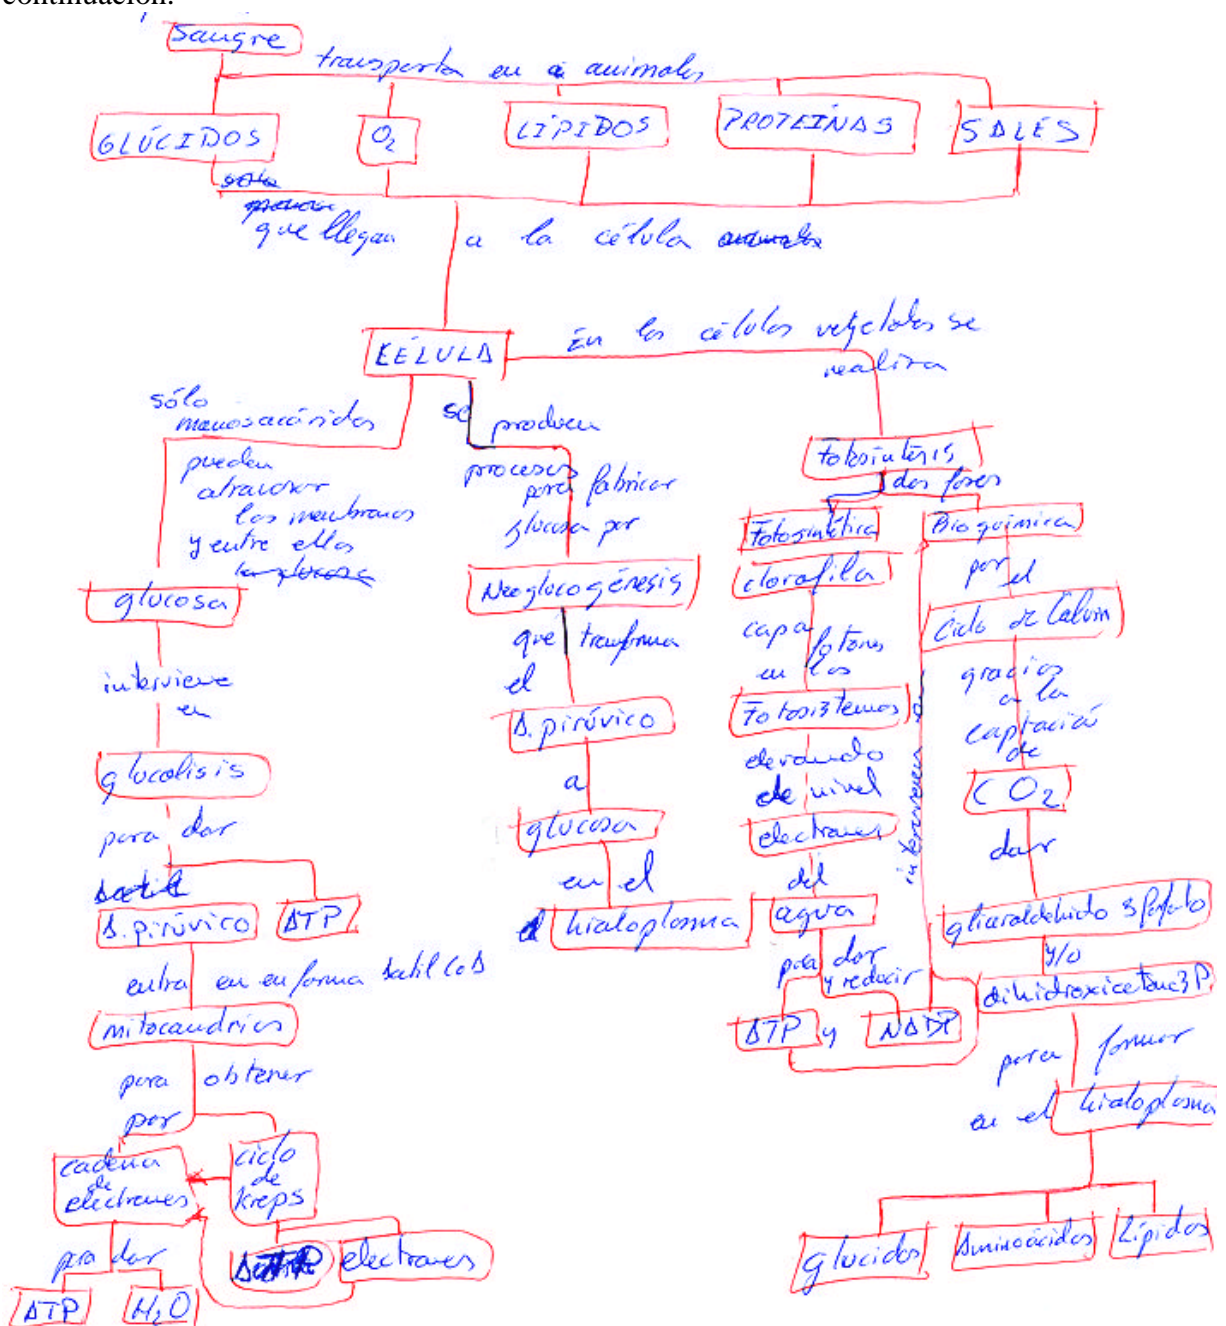 continuación.
Sangre
transporta en a animales
GLÚCIDOS
O2
LÍPIDOS
PROTEÍNAS
SALES
que llegan a la célula
CÉLULA
En las células vegetales se
realiza
sólo
monosacáridos
pueden
atravesar
las membranas
y entre ellos
la glucosa
glucosa
interviene
en
glucolisis
para dar
A. pirúvico
ATP
entra en en forma Aatil CoA
mitocondrias
para obtener
por
cadena
de
electrones
ciclo
de
Kreps
para dar
ATP
H2O
electrones
se producen
procesos
para fabricar
glucosa por
Neoglucogénesis
que tranforma
el
A. pirúvico
a
glucosa
en el
hialoplasma
Fotosíntesis
dos fases
Fotosintética
clorofila
capa fotones
en los
Fotosistemas
elevando
de nivel
electrones
del
agua
para dar
y reducir
ATP y NADP
intervienen
Bioquímica
por
el
Ciclo de Calvin
gracias
a la
captación
de
CO2
dar
gliceraldehido 3 fosfato
y/o
dihidroxicetona 3P
para formar
en el hialoplasma
glucidos
Aminoácidos
Lípidos